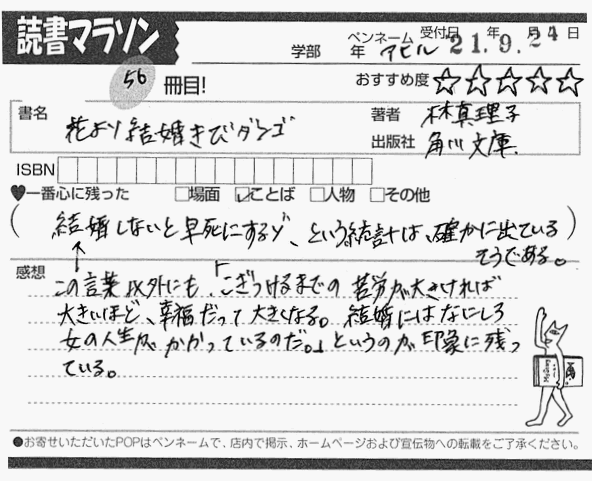 読書マラソン
56 冊目!
学部 年
ペンネーム アヒル
受付日 年 月 日
21.9.24
おすすめ度 ☆☆☆☆☆
書名 花より結婚きびダンゴ
著者 林真理子
出版社 角川文庫
ISBN
♥一番心に残った □場面 ☑ことば □人物 □その他
(結婚しないと早死にするゾ、という統計は、確かに出ている
そうである。)
感想 この言葉以外にも、「こぎつけるまでの苦労が大きければ
大きいほど、幸福だって大きくなる。結婚にはなにしろ
女の人生がかかっているのだ。」というのが印象に残っ
ている。
●お寄せいただいたPOPはペンネームで、店内で掲示、ホームページおよび宣伝物への転載をご了承ください。